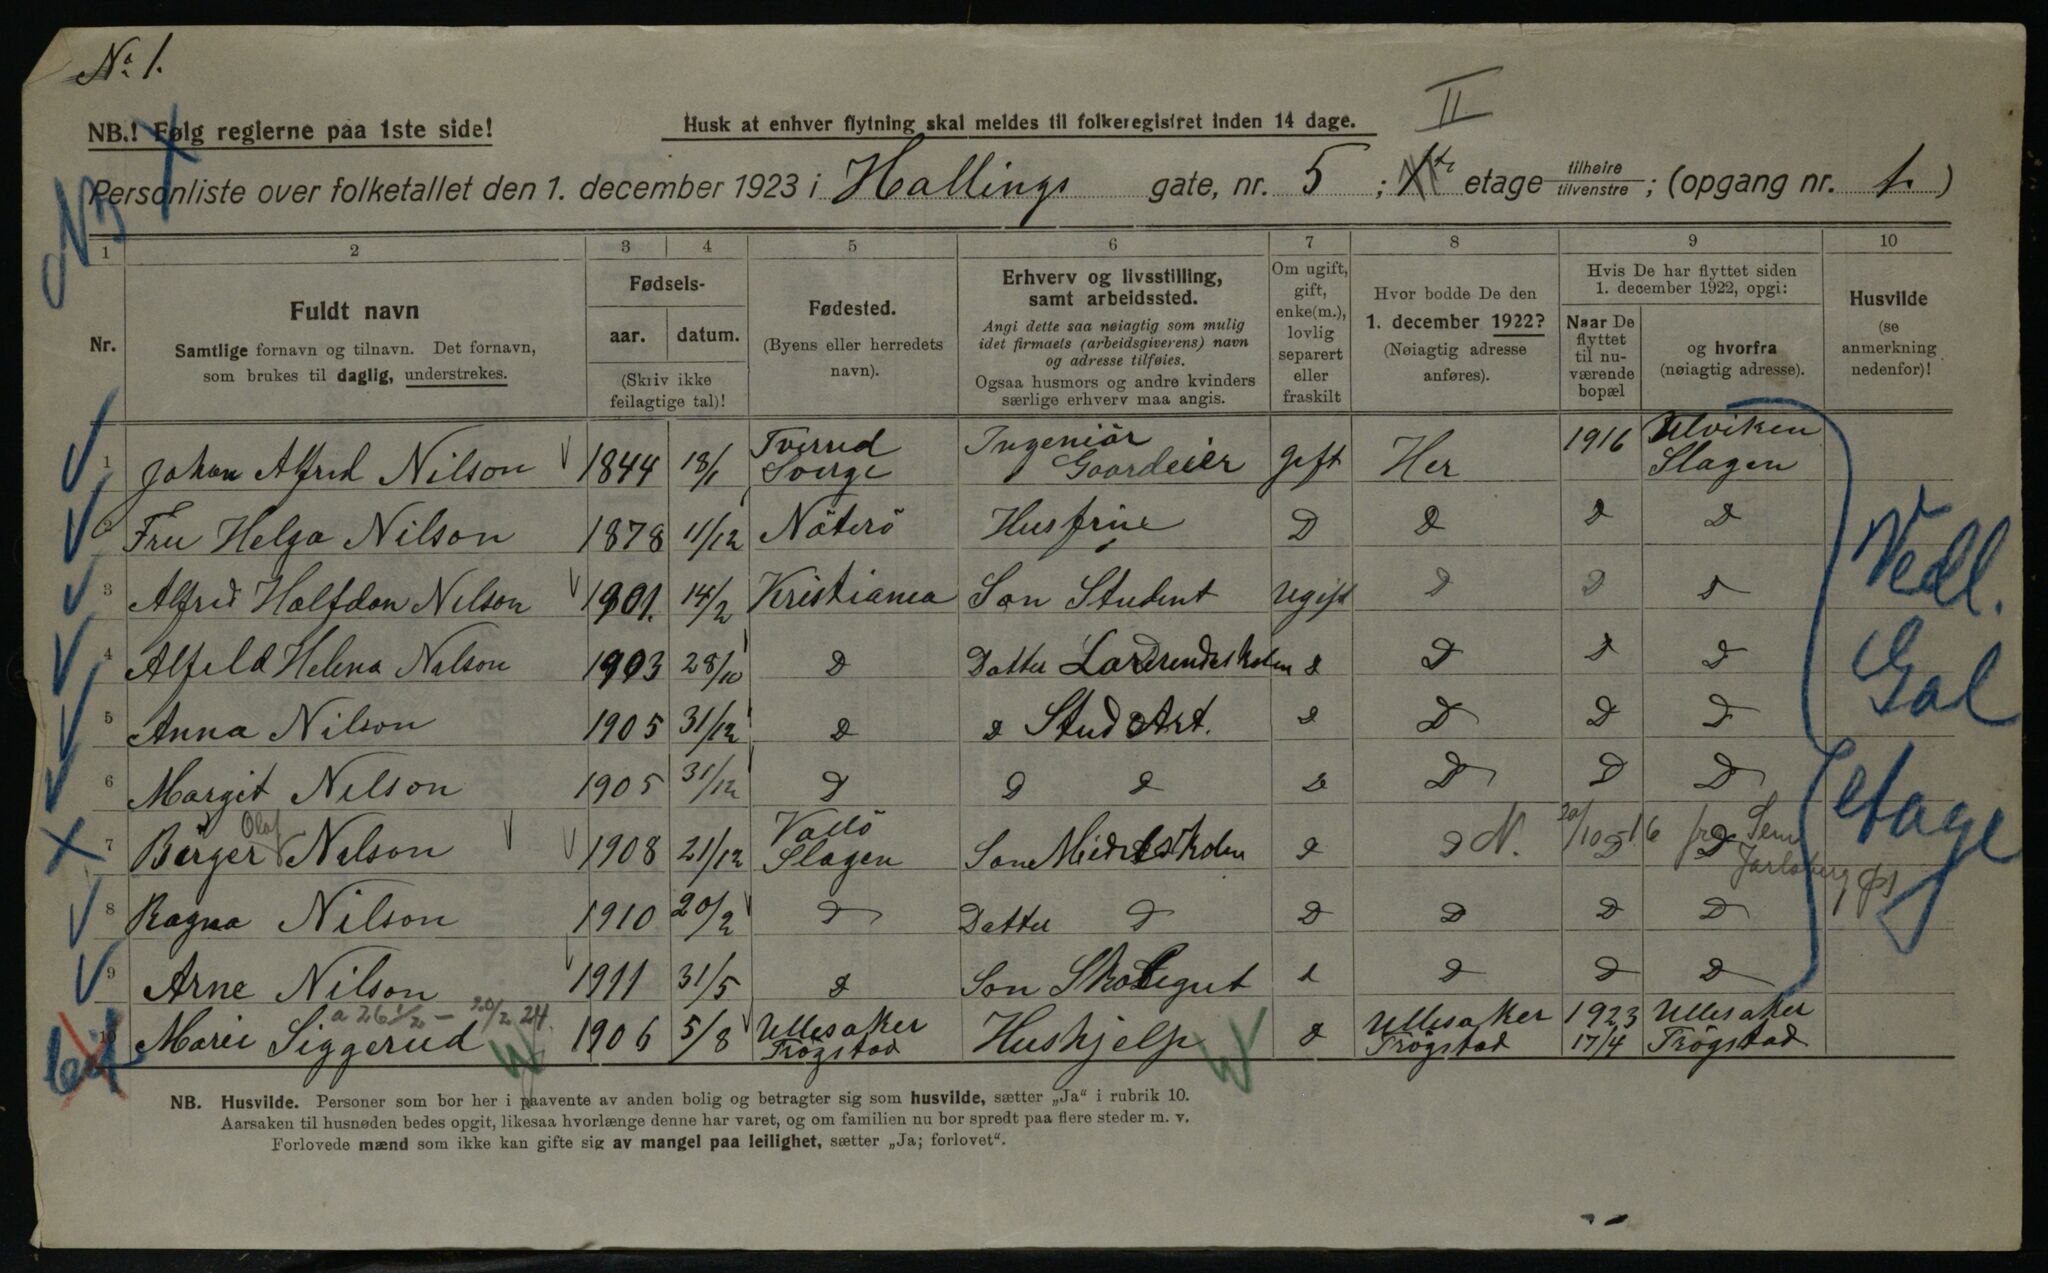 No. 1.
NB.! Følg reglerne paa 1ste side!
Husk at enhver flytning skal meldes til folkeregistret inden 14 dage.
II
Personliste over folketallet den 1. december 1923 i Hallings gate, nr. 5 ; etage tilhøire tilvenstre ; (opgang nr. 1. )
1 2 3 4 5 6 7 8 9 10
Nr.
Fuldt navn
Samtlige fornavn og tilnavn. Det fornavn,
som brukes til daglig, understrekes.
Fødsels-
aar. datum.
(Skriv ikke
feilagtige tal)!
Fødested.
(Byens eller herredets
navn).
Erhverv og livsstilling,
samt arbeidssted.
Angi dette saa nøiagtig som mulig
idet firmaets (arbeidsgiverens) navn
og adresse tilføies.
Ogsaa husmors og andre kvinders
særlige erhverv maa angis.
Om ugift,
gift,
enke(m.),
lovlig
separert
eller
fraskilt
Hvor bodde De den
1. december 1922?
(Nøiagtig adresse
anføres).
Hvis De har flyttet siden
1. december 1922, opgi:
Naar De
flyttet
til nu-
værende
bopæl
og hvorfra
(nøiagtig adresse).
Husvilde
(se
anmerkning
nedenfor)!
1 Johan Alfred Nilson 1844 18/1 Tverud Sverge Ingeniör Gaardeier Gift Her 1916 Ulviken Slagen
2 Fru Helga Nilson 1878 11/12 Nöterö Husfrue D D D D
3 Alfred Halfdan Nilson 1901. 14/2 Kristiania Son Student Ugift D D D
4 Alfild Helena Nilson 1903 28/10 D Datter D D D D
5 Anna Nilson 1905 31/12 D D Stud Art. D D D D
6 Margit Nilson 1905 31/12 D D D D D D D
7 Birger Olaf Nilson 1908 21/12 Vallö Slagen Son Middelskolen D D N. 20/10 16 D fra Sem Jarlsberg
8 Ragna Nilson 1910 20/2 D Datter D D D D D
9 Arne Nilson 1911 31/5 D Son Skolegut D D D D
10 Marie Siggerud a 26 1/2 – 20/2 24. 1906 5/8 Ullesaker Frögstad Hushjelp D Ullesaker Frögstad 1923 17/4 Ullesaker Frögstad
Vedl.
Gal
etage
NB. Husvilde. Personer som bor her i paavente av anden bolig og betragter sig som husvilde, sætter „Ja“ i rubrik 10.
Aarsaken til husnøden bedes opgit, likesaa hvorlænge denne har varet, og om familien nu bor spredt paa flere steder m. v.
Forlovede mænd som ikke kan gifte sig av mangel paa leilighet, sætter „Ja; forlovet“.